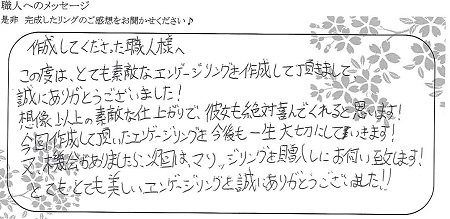 職人へのメッセージ
是非 完成したリングのご感想をお聞かせください♪
作成してくださった職人様へ
この度は、とても素敵なエンゲージリングを作成して頂きまして、
誠にありがとうございました!
想像以上の素敵な仕上がりで、彼女も絶対喜んでくれると思います!
今回作成して頂いたエンゲージリングを今後も一生大切にして
又、機会がありましたら次回は、マリッジリングを お伺い致します!
とても、とても美しいエンゲージリングを誠にありがとうございました!!